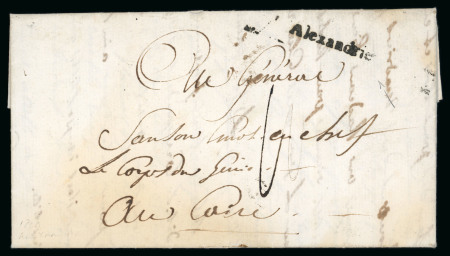 Alexandrie
Au Général
Sanson en chef
Le Corps du Génie
Au Caire